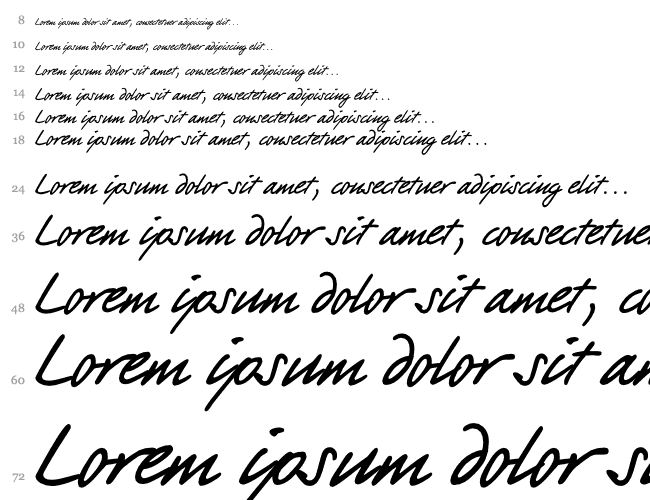 8 Lorem ipsum dolor sit amet, consectetuer adipiscing elit...
10 Lorem ipsum dolor sit amet, consectetuer adipiscing elit...
12 Lorem ipsum dolor sit amet, consectetuer adipiscing elit...
14 Lorem ipsum dolor sit amet, consectetuer adipiscing elit...
16 Lorem ipsum dolor sit amet, consectetuer adipiscing elit...
18 Lorem ipsum dolor sit amet, consectetuer adipiscing elit...
24 Lorem ipsum dolor sit amet, consectetuer adipiscing elit...
36 Lorem ipsum dolor sit amet, consectetuer
48 Lorem ipsum dolor sit amet, co
60 Lorem ipsum dolor sit am
72 Lorem ipsum dolor s